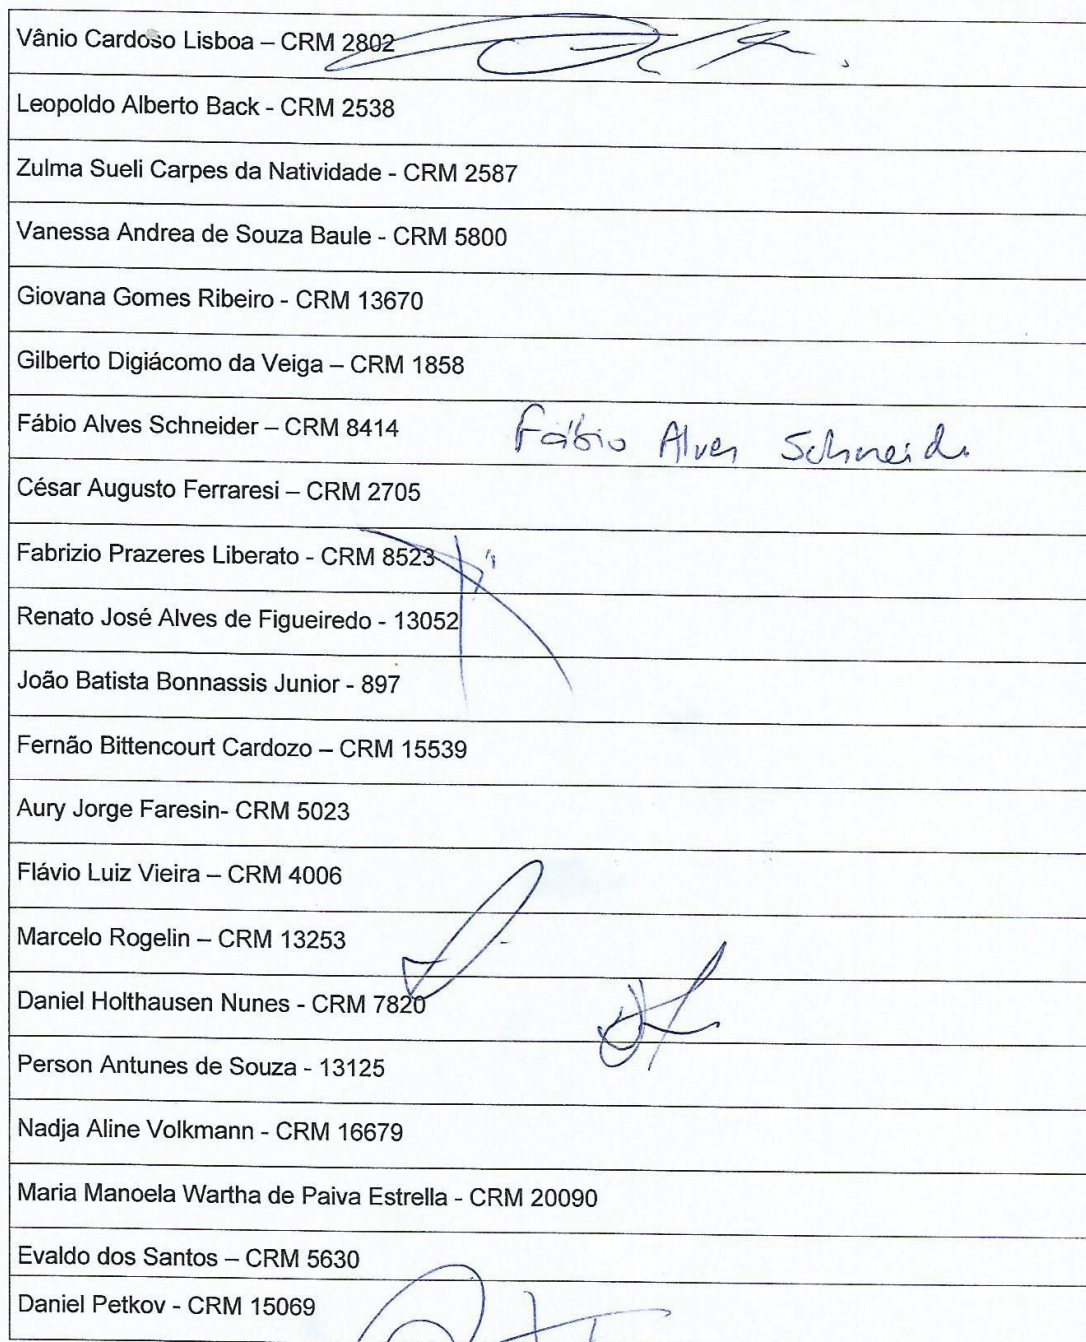 Vânio Cardoso Lisboa – CRM 2802
Leopoldo Alberto Back - CRM 2538
Zulma Sueli Carpes da Natividade - CRM 2587
Vanessa Andrea de Souza Baule - CRM 5800
Giovana Gomes Ribeiro - CRM 13670
Gilberto Digiácomo da Veiga – CRM 1858
Fábio Alves Schneider – CRM 8414 Fábio Alves
César Augusto Ferraresi – CRM 2705
Fabrizio Prazeres Liberato - CRM 8523
Renato José Alves de Figueiredo - 13052
João Batista Bonnassis Junior - 897
Fernão Bittencourt Cardozo – CRM 15539
Aury Jorge Faresin- CRM 5023
Flávio Luiz Vieira – CRM 4006
Marcelo Rogelin – CRM 13253
Daniel Holthausen Nunes - CRM 7820
Person Antunes de Souza - 13125
Nadja Aline Volkmann - CRM 16679
Maria Manoela Wartha de Paiva Estrella - CRM 20090
Evaldo dos Santos – CRM 5630
Daniel Petkov - CRM 15069